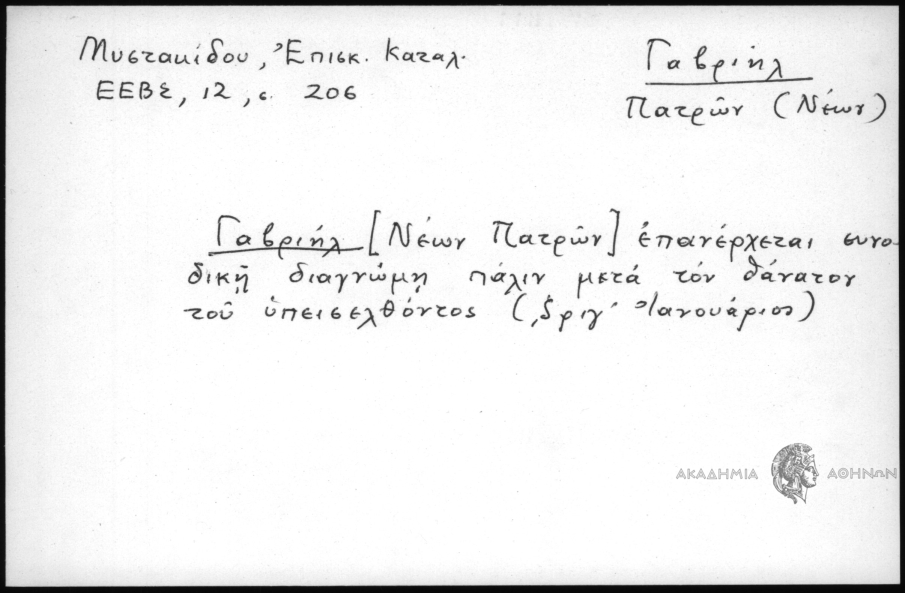 Μυστακίδου, Ἐπισκ. Καταλ.
ΕΕΒΣ, 12, σ. 206
Γαβριήλ
Πατρῶν (Νέων)
Γαβριήλ [Νέων Πατρῶν] ἐπανέρχεται συνο-
δικῇ διαγνώμῃ πάλιν μετά τόν θάνατον
τοῦ ὑπεισελθόντος (͵ζριγ′ Ἰανουάριος)
ΑΚΑΔΗΜΙΑ ΑΘΗΝΩΝ